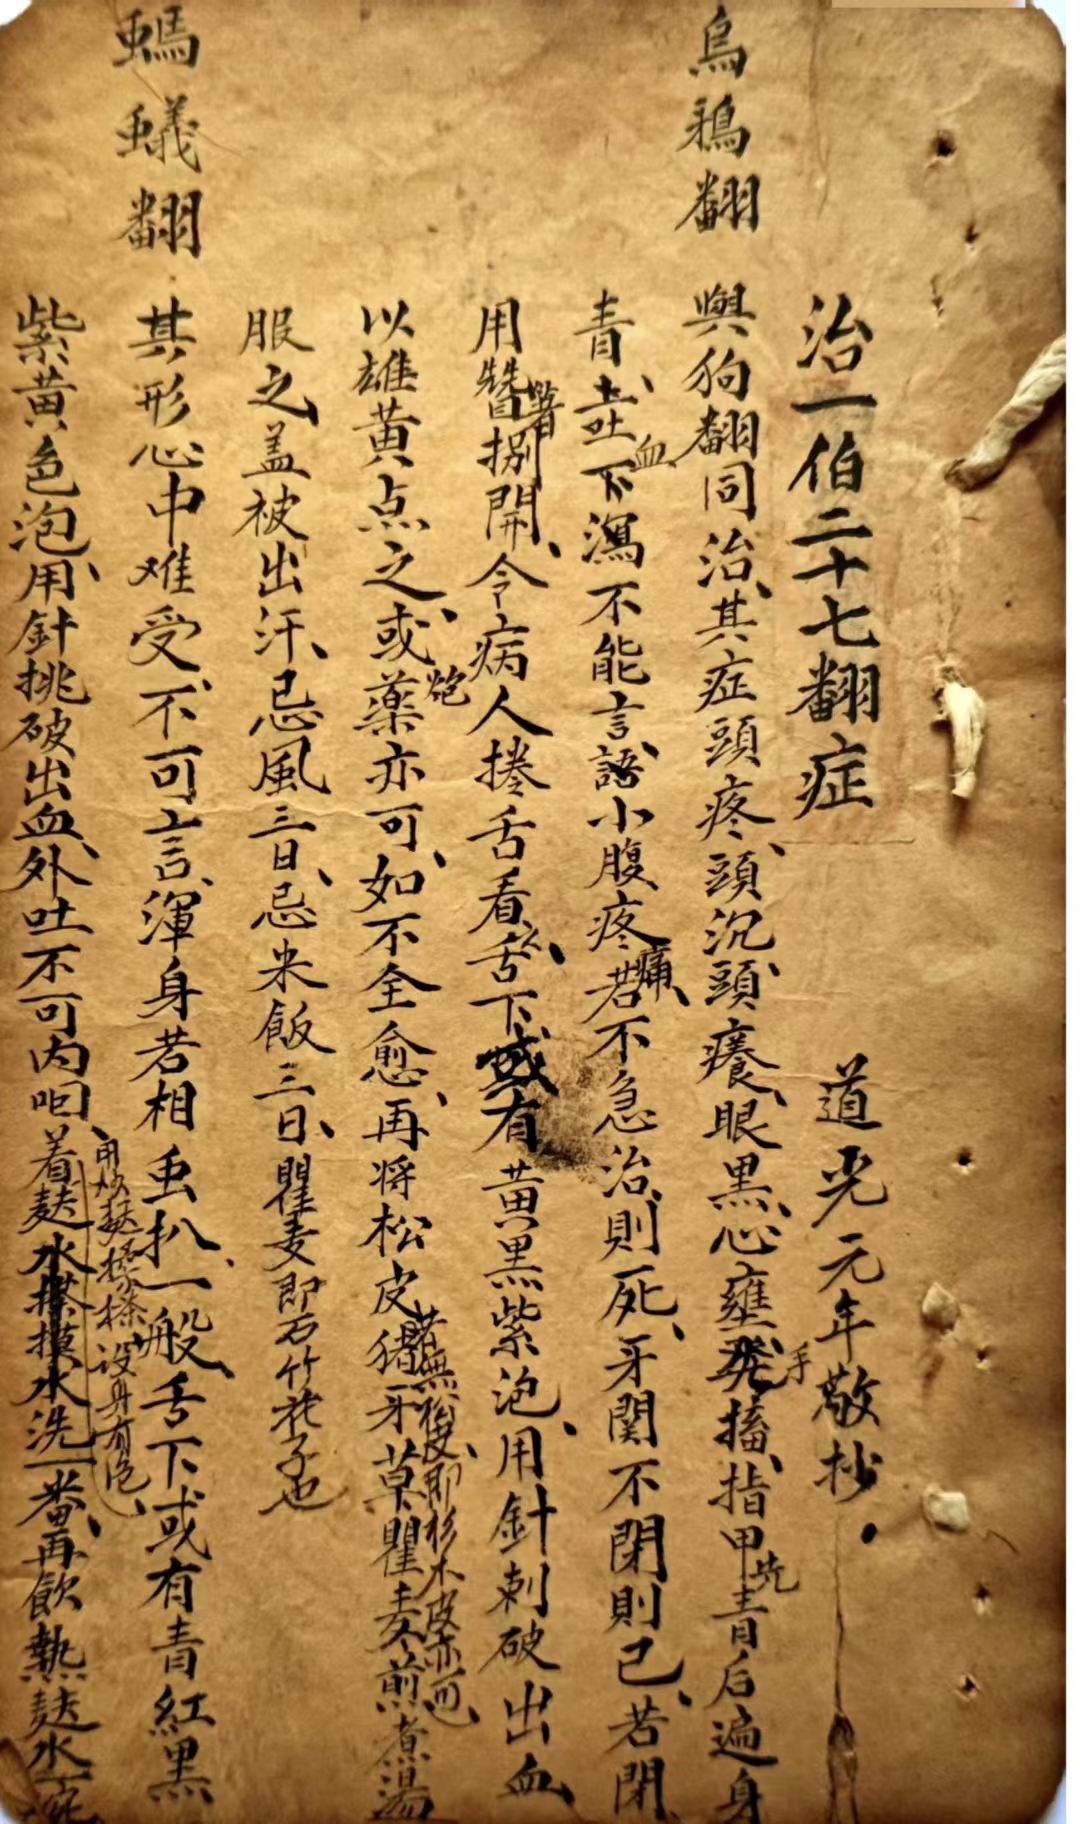 治一伯二十七翻症　道光元年敬抄
烏鴉翻
與狗翻同治、其症頭疼、頭沉、頭癢、眼黑、心壅、發手搐、指甲先青后遍身
青、吐血下瀉不能言語、小腹疼痛、若不急治、則死、牙関不閉則已、若閉、
用簪箸捌開、令病人捲舌看、舌下或有黃黑紫泡、用針刺破出血、
以雄黃点之、或炮藥亦可、如不全愈、再将松皮猪牙草瞿麦煎煮湯
若無松皮、即杉木皮亦可、
服之、盖被出汗、忌風三日、忌米飯三日、瞿麦即石竹花子也
螞蟻翻
其形心中难受、不可言、渾身若相虫扒、一般、舌下或有青紅黑
紫黃色泡、用針挑破出血、外吐不可内咽、着麸水搽摸水洗一番、再飲熱麸水一碗